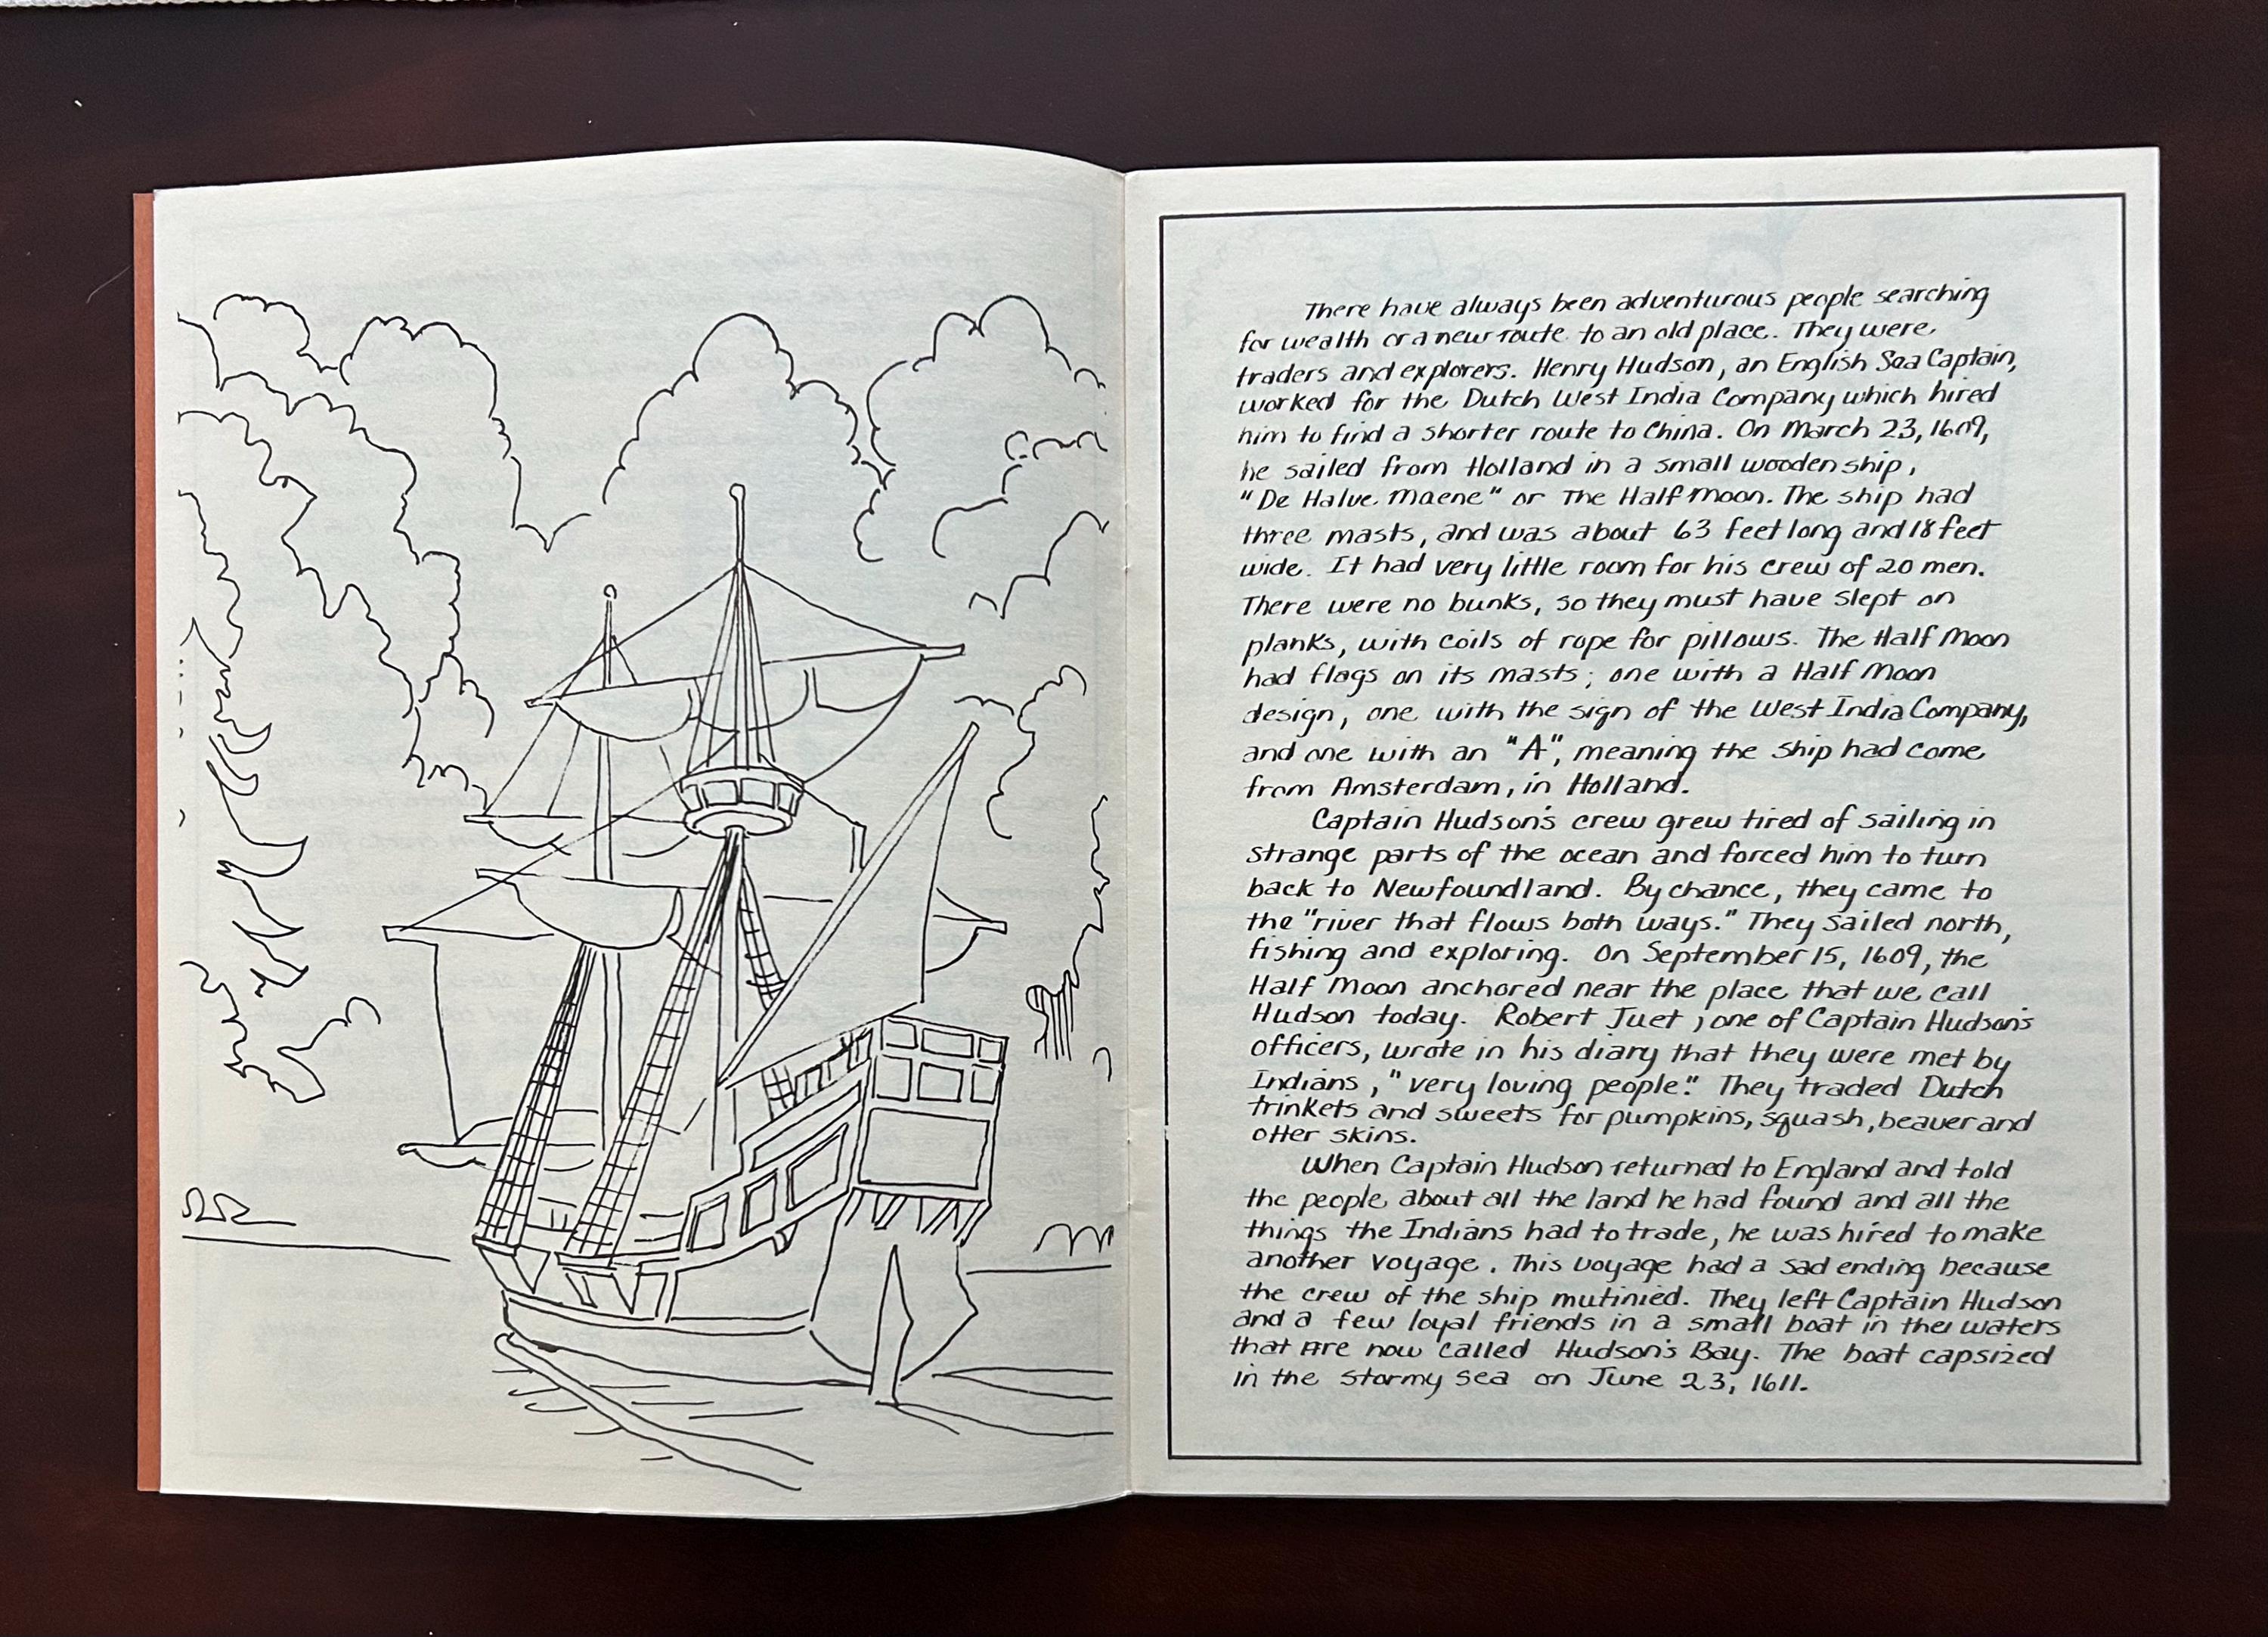 There have always been adventurous people searching
for wealth or a new route to an old place. They were
traders and explorers. Henry Hudson, an English Sea Captain,
worked for the Dutch West India Company which hired
him to find a shorter route to China. On March 23, 1609,
he sailed from Holland in a small wooden ship,
"De Halve Maene" or The Half Moon. The ship had
three masts, and was about 63 feet long and 18 feet
wide. It had very little room for his crew of 20 men.
There were no bunks, so they must have slept on
planks, with coils of rope for pillows. The Half Moon
had flags on its masts; one with a Half Moon
design, one with the sign of the West India Company,
and one with an "A", meaning the ship had come
from Amsterdam, in Holland.
Captain Hudson's crew grew tired of sailing in
strange parts of the ocean and forced him to turn
back to Newfoundland. By chance, they came to
the "river that flows both ways." They sailed north,
fishing and exploring. On September 15, 1609, the
Half Moon anchored near the place that we call
Hudson today. Robert Juet, one of Captain Hudson's
officers, wrote in his diary that they were met by
Indians, "very loving people." They traded Dutch
trinkets and sweets for pumpkins, squash, beaver and
otter skins.
When Captain Hudson returned to England and told
the people about all the land he had found and all the
things the Indians had to trade, he was hired to make
another voyage. This voyage had a sad ending because
the crew of the ship mutinied. They left Captain Hudson
and a few loyal friends in a small boat in the waters
that are now called Hudson's Bay. The boat capsized
in the stormy sea on June 23, 1611.